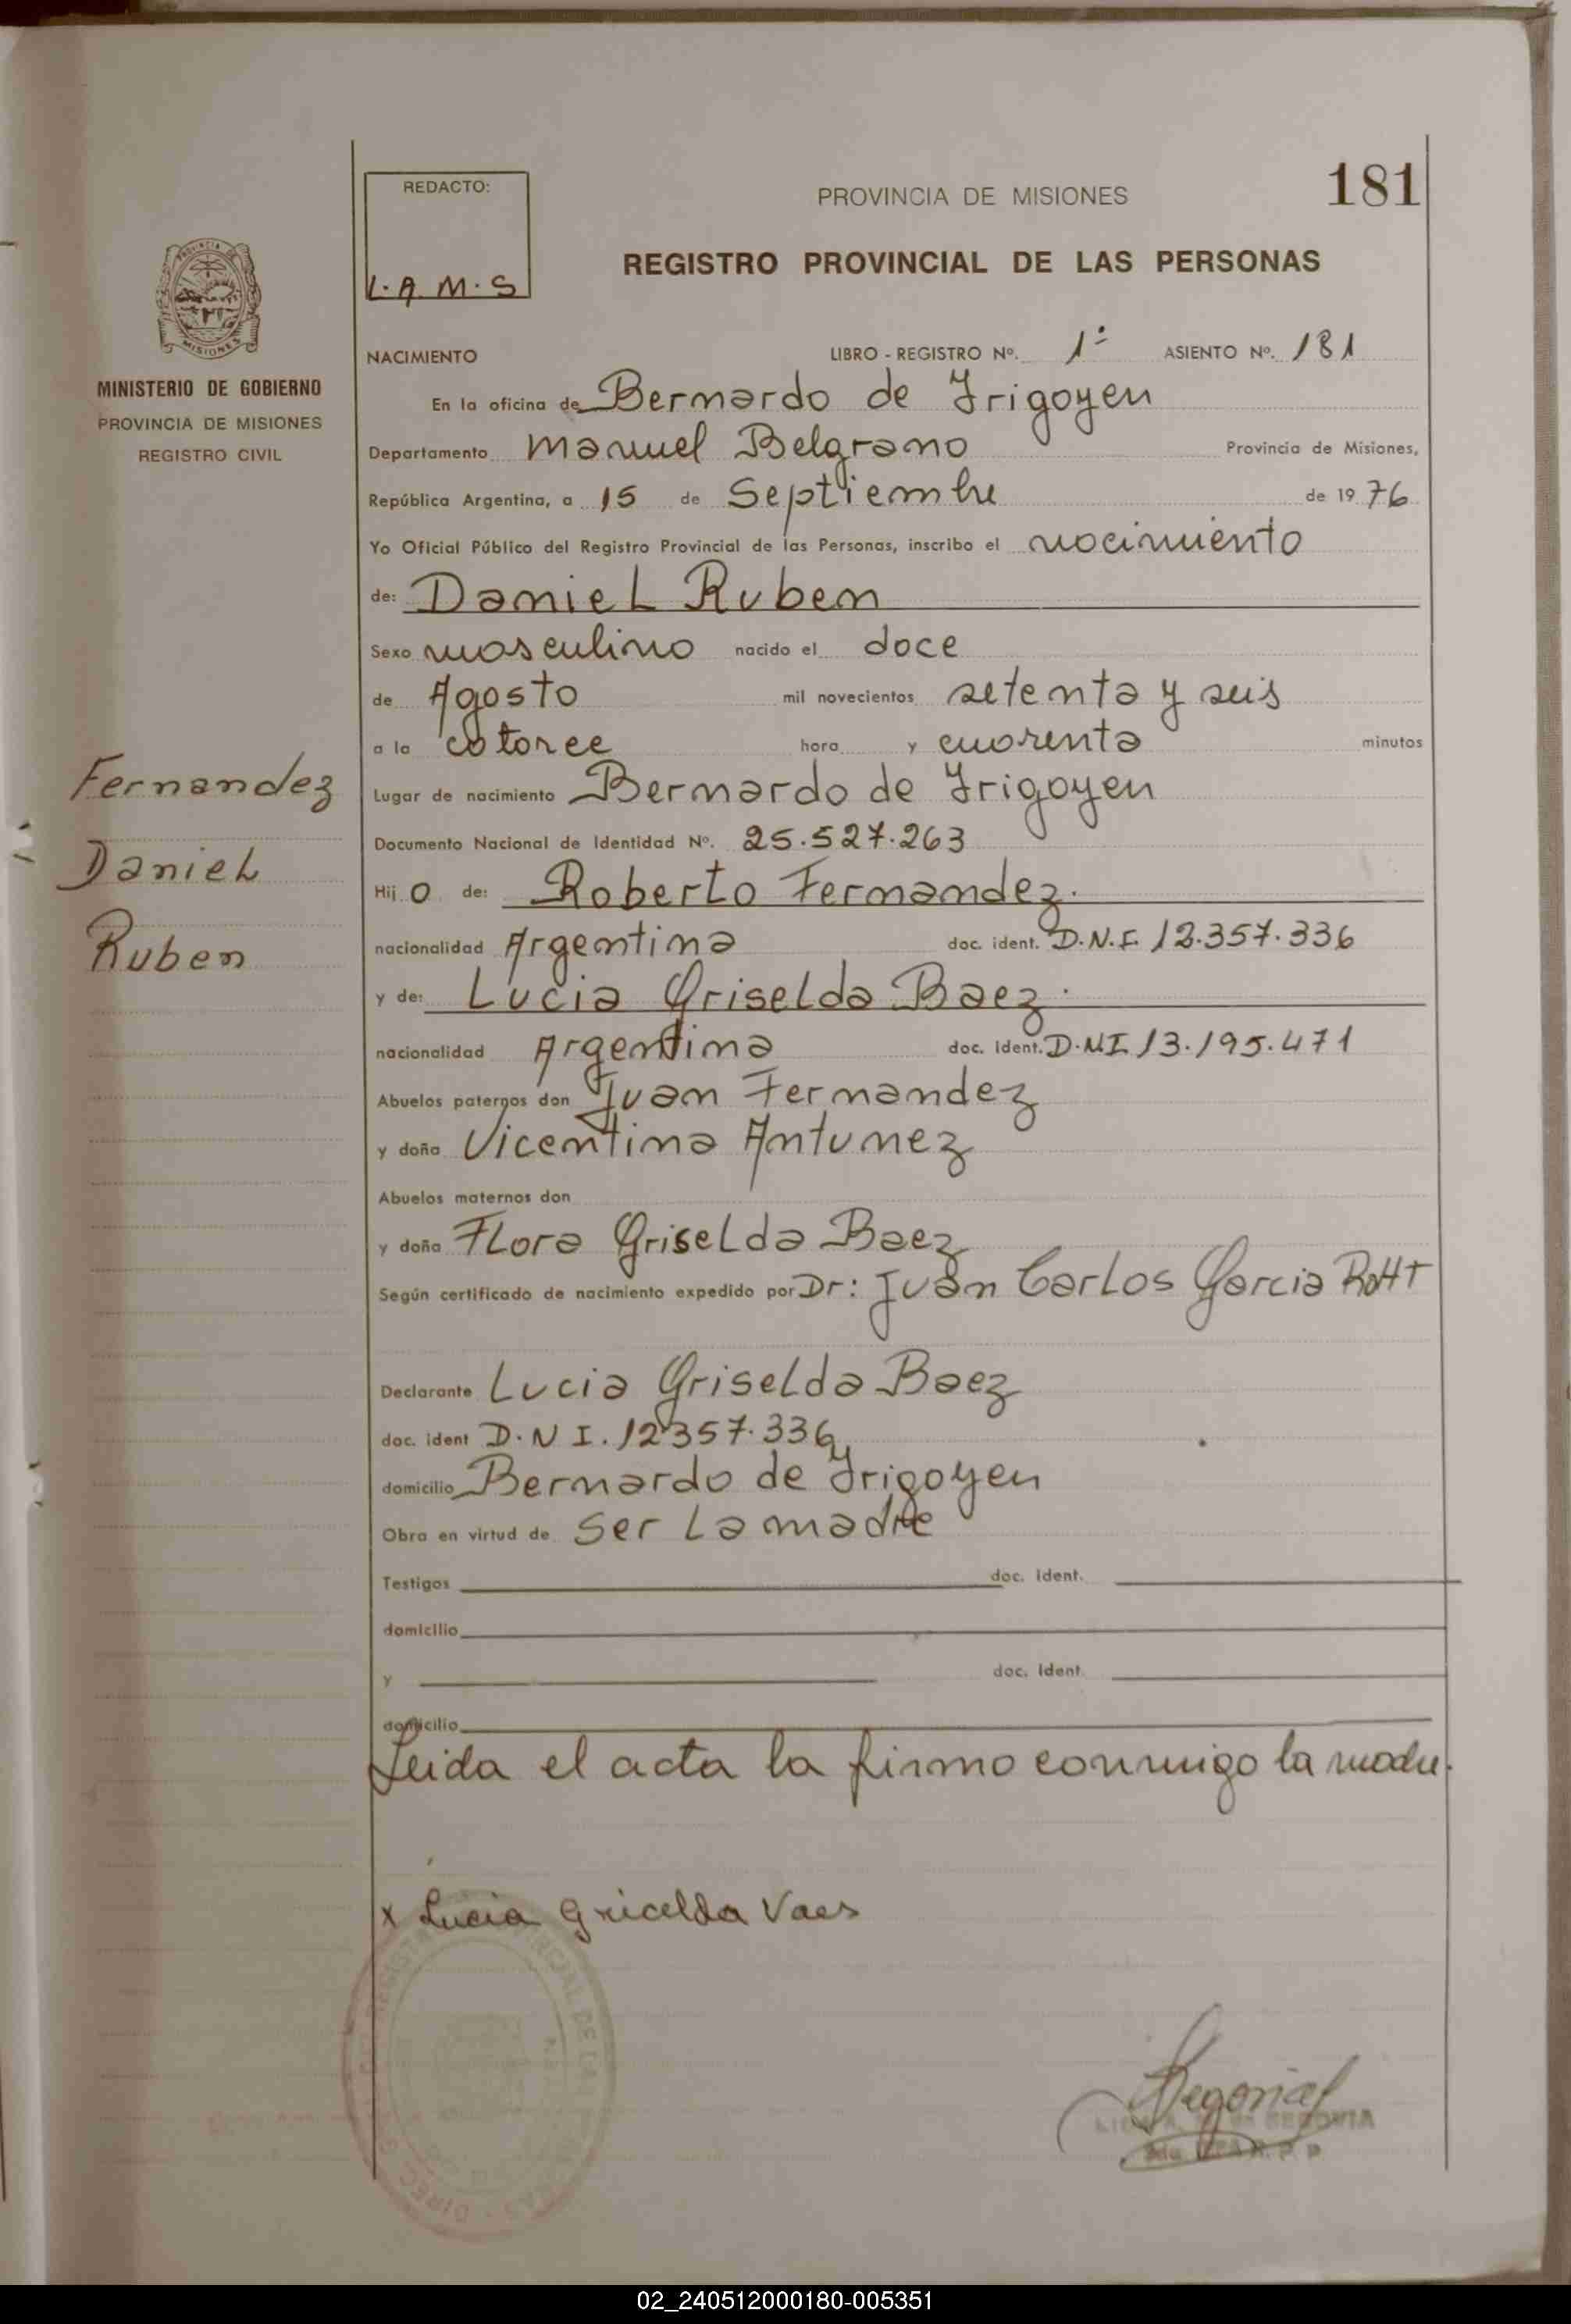 181
REDACTO:
L.A.M.S
PROVINCIA DE MISIONES
REGISTRO PROVINCIAL DE LAS PERSONAS
MISIONES
MINISTERIO DE GOBIERNO
PROVINCIA DE MISIONES
REGISTRO CIVIL
NACIMIENTO LIBRO - REGISTRO Nº. 1º ASIENTO Nº. 181
En la oficina de Bernardo de Irigoyen
Departamento Manuel Belgrano Provincia de Misiones,
República Argentina, a 15 de Septiembre de 1976
Yo Oficial Público del Registro Provincial de las Personas, inscribo el nacimiento
de: Daniel Ruben
Sexo masculino nacido el doce
de Agosto mil novecientos setenta y seis
a la catorce hora y cuarenta minutos
Lugar de nacimiento Bernardo de Irigoyen
Documento Nacional de Identidad Nº. 25.527.263
Hijo de: Roberto Fernandez.
nacionalidad Argentina doc. ident. D.N.I. 12.357.336
y de: Lucia Griselda Baez.
nacionalidad Argentina doc. Ident. D.N.I. 13.195.471
Abuelos paternos don Juan Fernandez
y doña Vicentina Antunez
Abuelos maternos don
y doña Flora Griselda Baez
Según certificado de nacimiento expedido por Dr: Juan Carlos Garcia Rott
Declarante Lucia Griselda Baez
doc. ident D.N I. 12357.336
domicilio Bernardo de Irigoyen
Obra en virtud de Ser La madre
Testigos doc. ident.
domicilio
y doc. Ident
domicilio
Leida el acta la firmo conmigo la madre.
x Lucia Gricelda Vaes
Fernandez
Daniel
Ruben
02_240512000180-005351